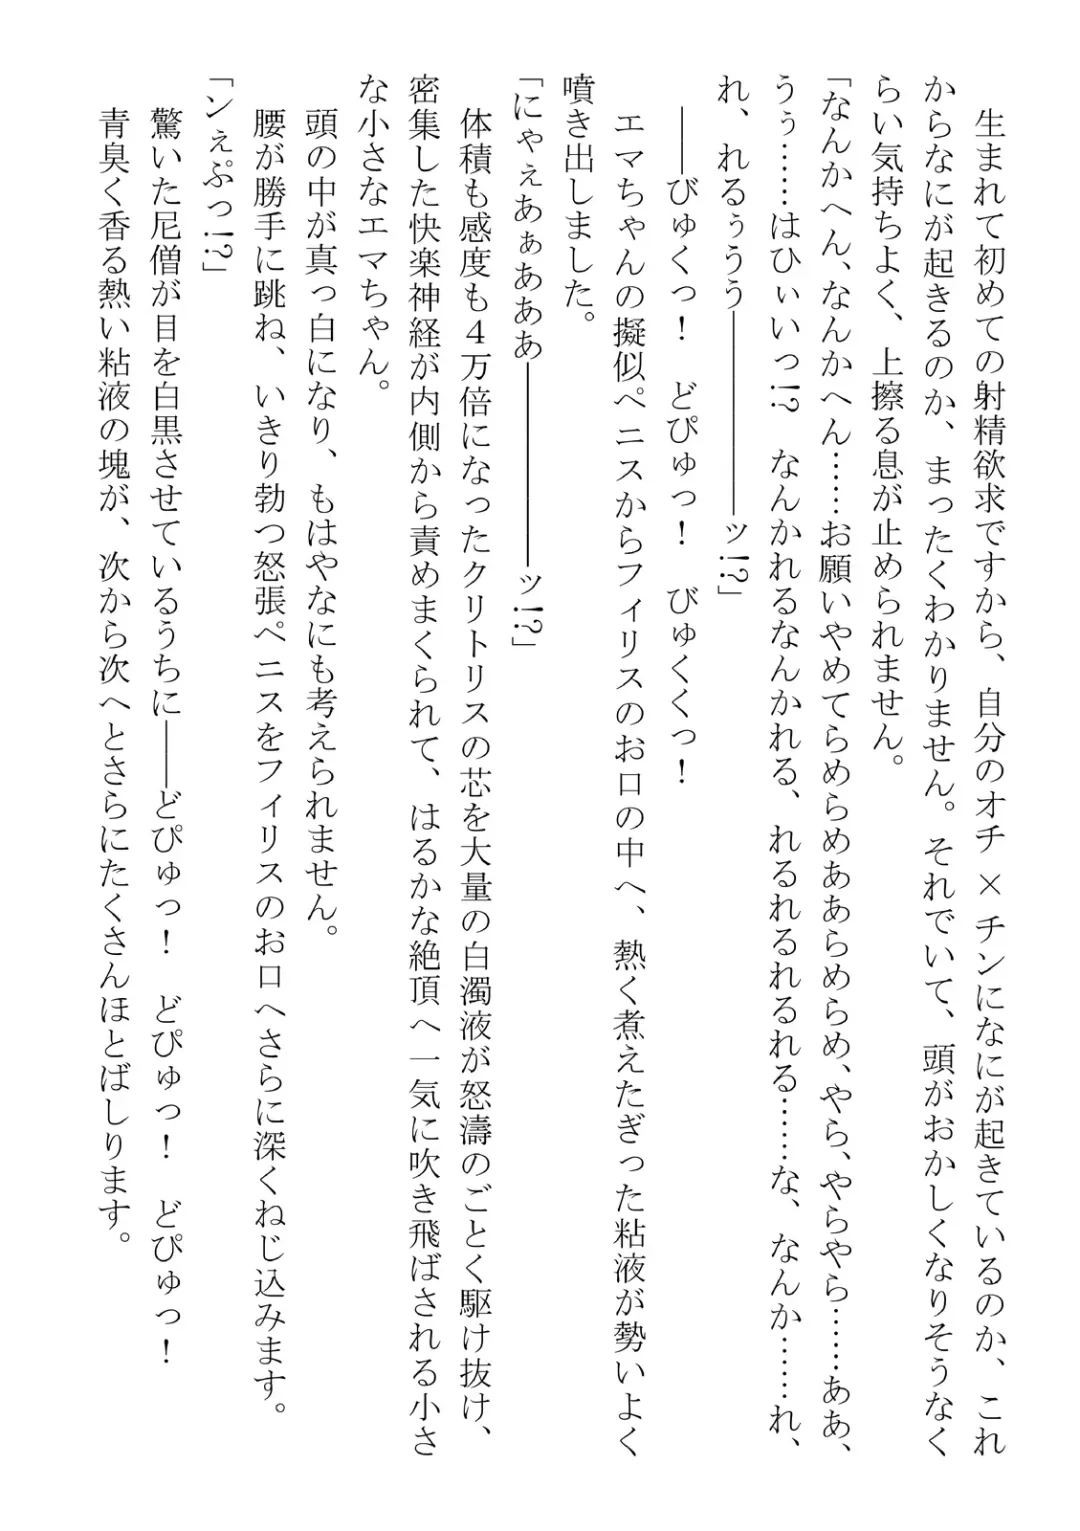 生まれて初めての射精欲求ですから、自分のオチ×チンになにが起きているのか、これ
からなにが起きるのか、まったくわかりません。それでいて、頭がおかしくなりそうなく
らい気持ちよく、上擦る息が止められません。
「なんかへん、なんかへん……お願いやめてらめらめああらめらめ、やら、やらやら……ああ、
うぅ……はひぃいっ!?　なんかれるなんかれる、れるれるれるれる……な、なんか……れ、
れ、れるぅうう――――――ッ!?」
――びゅくっ！　どぴゅっ！　びゅくくっ！
エマちゃんの擬似ペニスからフィリスのお口の中へ、熱く煮えたぎった粘液が勢いよく
噴き出しました。
「にゃぇあぁあああ――――――ッ!?」
体積も感度も４万倍になったクリトリスの芯を大量の白濁液が怒濤のごとく駆け抜け、
密集した快楽神経が内側から責めまくられて、はるかな絶頂へ一気に吹き飛ばされる小さ
な小さなエマちゃん。
頭の中が真っ白になり、もはやなにも考えられません。
腰が勝手に跳ね、いきり勃つ怒張ペニスをフィリスのお口へさらに深くねじ込みます。
「ンぇぷっ!?」
驚いた尼僧が目を白黒させているうちに――どぴゅっ！　どぴゅっ！　どぴゅっ！
青臭く香る熱い粘液の塊が、次から次へとさらにたくさんほとばしります。